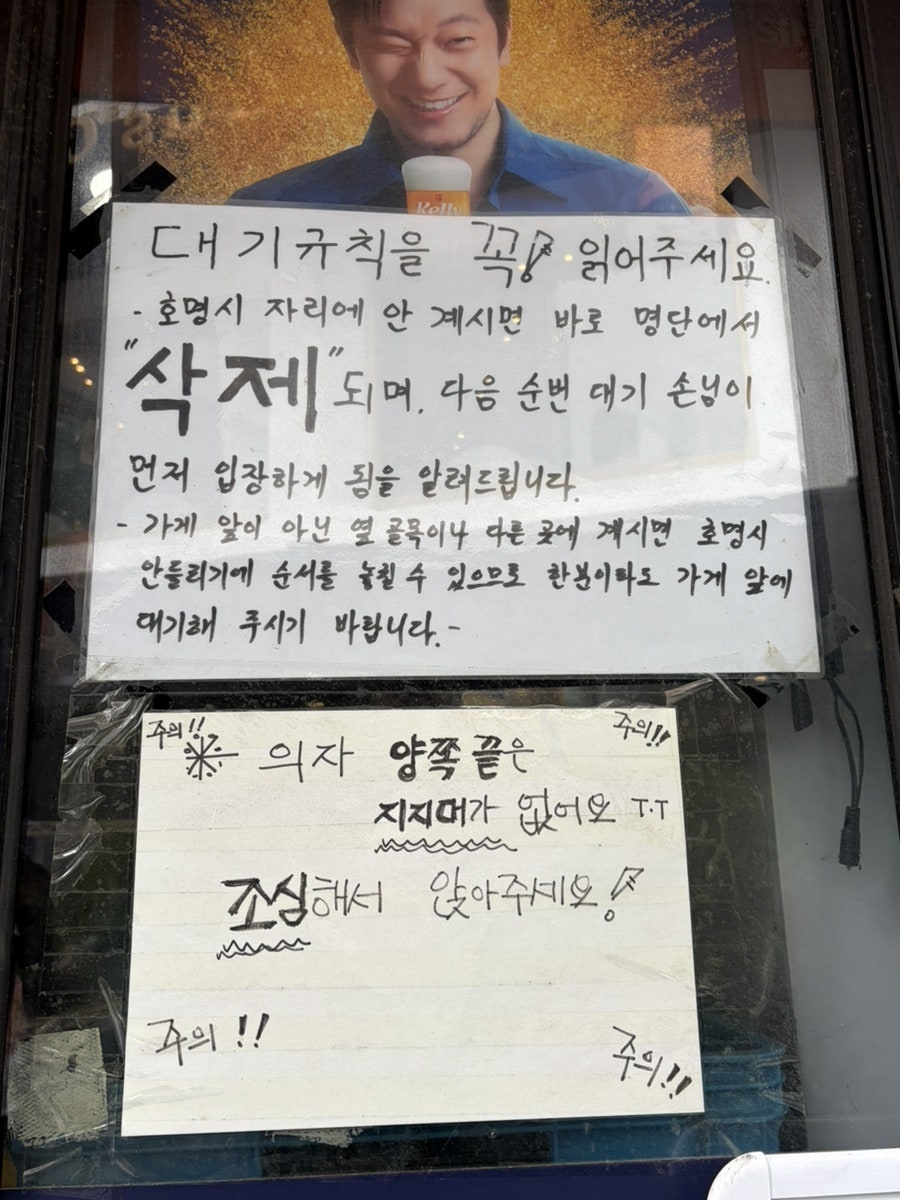 Kelly
대기규칙을 꼭! 읽어주세요.
- 호명시 자리에 안 계시면 바로 명단에서
"삭제"되며, 다음 순번 대기 손님이
먼저 입장하게 됨을 알려드립니다.
- 가게 앞이 아닌 옆 골목이나 다른 곳에 계시면 호명시
안들리기에 순서를 놓칠 수 있으므로 한분이라도 가게 앞에
대기해 주시기 바랍니다.-
주의!! 주의!!
※ 의자 양쪽 끝은
지지대가 없어요 T.T
조심해서 앉아주세요!
주의!! 주의!!